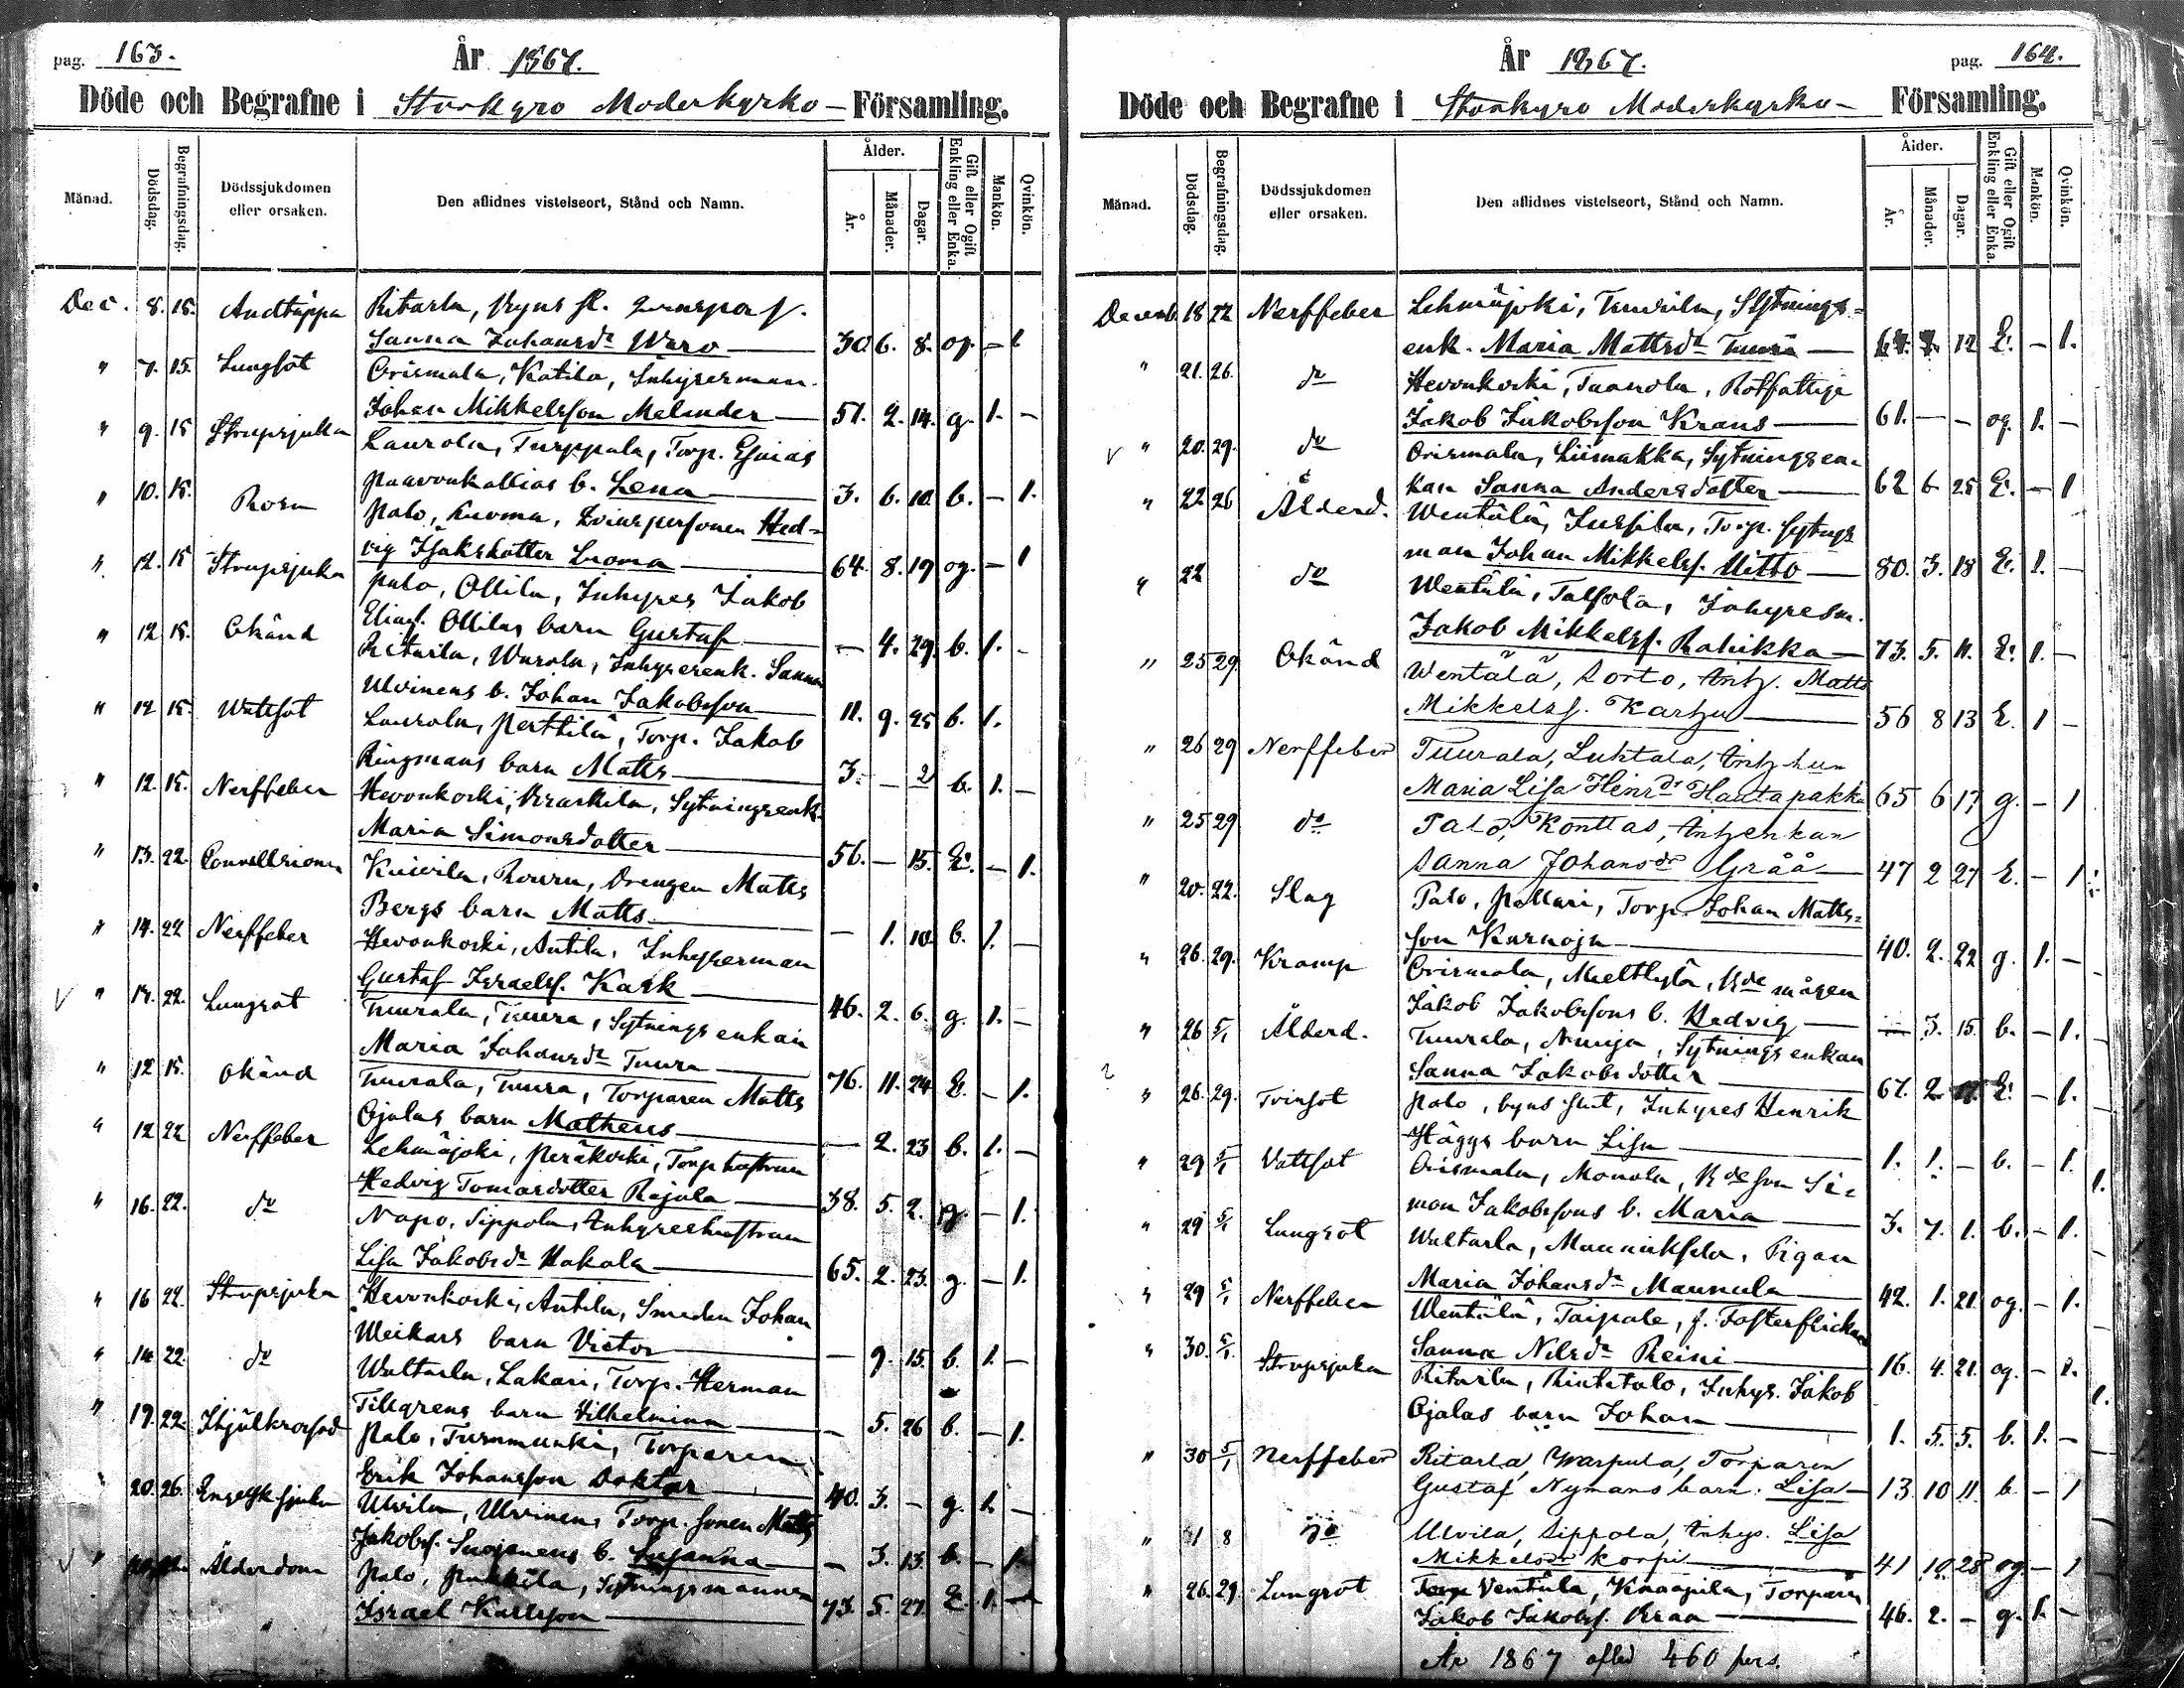 pag. 163.
År 1867.
Döde och Begrafne i Storkyro Moderkyrko- Församling.
Månad. Dödsdag. Begrafningsdag. Dödssjukdomen eller orsaken. Den aflidnes vistelseort, Stånd och Namn. Ålder. År. Månader. Dagar. Gift eller Ogift Enkling eller Enka. Mankön. Qvinkön.
Dec. 8. 15. Andtäppa Ritarla, Byns
Sanna Johansdr Waro 30. 6. 8. og. – 1
" 7. 15. Lungsot Orismala, Katila, Inhyserman.
Johan Mikkelsson Melander 51. 2. 14. g. 1. –
" 9. 15 Strupsjuka Laurola, Turppala, Torp. Esaias
Paavonkallios b. Lena 3. 6. 10. b. – 1.
" 10. 15. Rosen Palo, Luoma, Qvinspersonen Hed-
vig Isaksdotter Luoma 64. 8. 19 og. – 1
" 12. 15 Strupsjuka Palo, Ollila, Inhyses Jakob
Eliasf. Ollilas barn Gustaf – 4. 29. b. 1. –
" 12 15. Okänd Ritarla, Warola, Inhyserenk. Sanna
Ulvinens b. Johan Jakobsson 11. 9. 25 b. 1.
" 12 15. Wattsot Laurola, Perttilä, Torp. Jakob
Ringmans barn Matts 3. – 2 b. 1. –
" 12. 15. Nerffeber Hevonkoski, Sytningsenk.
Maria Simonsdotter 56. – 15. E. – 1.
" 13. 22. Convultionen Kuivila, Rouru, Drengen Matts
Bergs barn Matts – 1. 10. b. 1. –
" 14. 22 Nerffeber Hevonkoski, Antila, Inhyserman
Gustaf Israelsf. Kask 46. 2. 6. g. 1. –
V " 14. 22. Lungsot Tuurala, Tuura, Sytningsenkan
Maria Johansdr Tuura 76. 11. 24 E. – 1.
" 12 15. Okänd Tuurala, Tuura, Torparen Matts
Ojalas barn Matheus – 2. 23 b. 1. –
" 12 22 Nerffeber Lehmäjoki, Peräkoski, Torp hustrun
Hedvig Tomasdotter Rajala 38. 5. 2. g. – 1.
" 16. 22. do Napo, Sippola, Inhyseshustrun
Lisa Jakobsdr Hakala 65. 2. 23. g. – 1.
" 16 22. Strupsjuka Hevonkoski, Antila, Smeden Johan
Weikars barn Victor – 9. 15. b. 1. –
" 14 22. do Waltarla, Lakari, Torp. Herman
Tillgrens barn Vilhelmina – 5. 26 b. – 1.
" 19. 22. Palo, Turmmunki, Torparen
Erik Johansson Doktar 40. 3. – g. 1. –
" 20. 26. Engelsk sjuka Ulvila, Ulvinen, Torp. sonen Matts
Jakobsf. Suojanens b. Susanna – 3. 13. b. – 1.
V " Ålderdom Palo, Pukkila, Sytningsmannen
Israel Karlsson 73. 5. 27. E. 1. –
År 1867.
pag. 164.
Döde och Begrafne i Storkyro Moderkyrko- Församling.
Månad. Dödsdag. Begrafningsdag. Dödssjukdomen eller orsaken. Den aflidnes vistelseort, Stånd och Namn. Ålder. År. Månader. Dagar. Gift eller Ogift Enkling eller Enka. Mankön. Qvinkön.
Decemb. 18 22 Nerffeber Lehmäjoki, Sytnings-
enk. Maria Mattsdr Tuura 12 E. – 1.
" 21. 26. do Hevonkoski, Taanola, Rotfattige
Jakob Jakobsson Krans 61. – – og. 1. –
V " 20. 29. do Orismala, Liimakka, Sytningsen-
kan Sanna Andersdotter 62 6 25 E. – 1
" 22 26 Ålderd. Wentälä, Jussila, Torp. Sytngs
man Johan Mikkelsf. Mitto 80. 3. 18 E. 1. –
" 22 do Wentälä, Talsola, Inhysesm.
Jakob Mikkelsf. Rahikka 73. 5. 11. E. 1. –
" 25 29. Okänd Wentälä, Sorto, Matts
Mikkelsf. Kartzu 56 8 13 E. 1 –
" 26 29 Nerffeber Tuurala, Luhtala,
Maria Lisa Heinrdr Hautapakka 65 6 17 g. – 1
" 25 29 do Palo, Konttas,
Sanna Johansdr Gråå 47 2 27 E. – 1
" 20. 22. Slag Palo, Pollari, Torp. Johan Matts-
son Karnoja 40. 2. 22 g. 1. –
" 26. 29. Kramp Orismala, Bde mågen
Jakob Jakobssons b. Hedvig – 3. 15. b. – 1.
" 26 5/1 Ålderd. Tuurala, Sytningsenkan
Sanna Jakobsdotter 67. 2. E. – 1.
" 26. 29. Tvinsot Palo, byns fint, Inhyses Henrik
Häggs barn Lisa 1. 1. – b. – 1.
" 29 5/1 Vattsot Orismala, Monola, Bde son Si-
mon Jakobssons b. Maria 3. 7. 1. b. – 1.
" 29 5/1 Lungsot Waltarla, Maunuksela, Pigan
Maria Johansdr Maunula 42. 1. 21. og. – 1.
" 29 5/1 Nerffeber Wentälä, Taipale, f. Fosterflickan
Sanna Nilsdr Reini 16. 4. 21. og. – 1.
" 30. 5/1. Strupsjuka Ritarla, Rintatalo, Inhys. Jakob
Ojalas barn Johan 1. 5. 5. b. 1. –
" 30 5/1 Nerffeber Ritarla, Warpula, Torparen
Gustaf Nymans barn: Lisa 13. 10 11. b. – 1
" 31 8 do Ulvila, Sippola, Inhys. Lisa
Mikkelsdr Korpi 41 10. 28 og. – 1
" 26. 29. Lungsot Ventälä, Knaapila, Torparen
Jakob Jakobsf. Kraa 46. 2. – g. 1. –
År 1867 afled 460 pers.